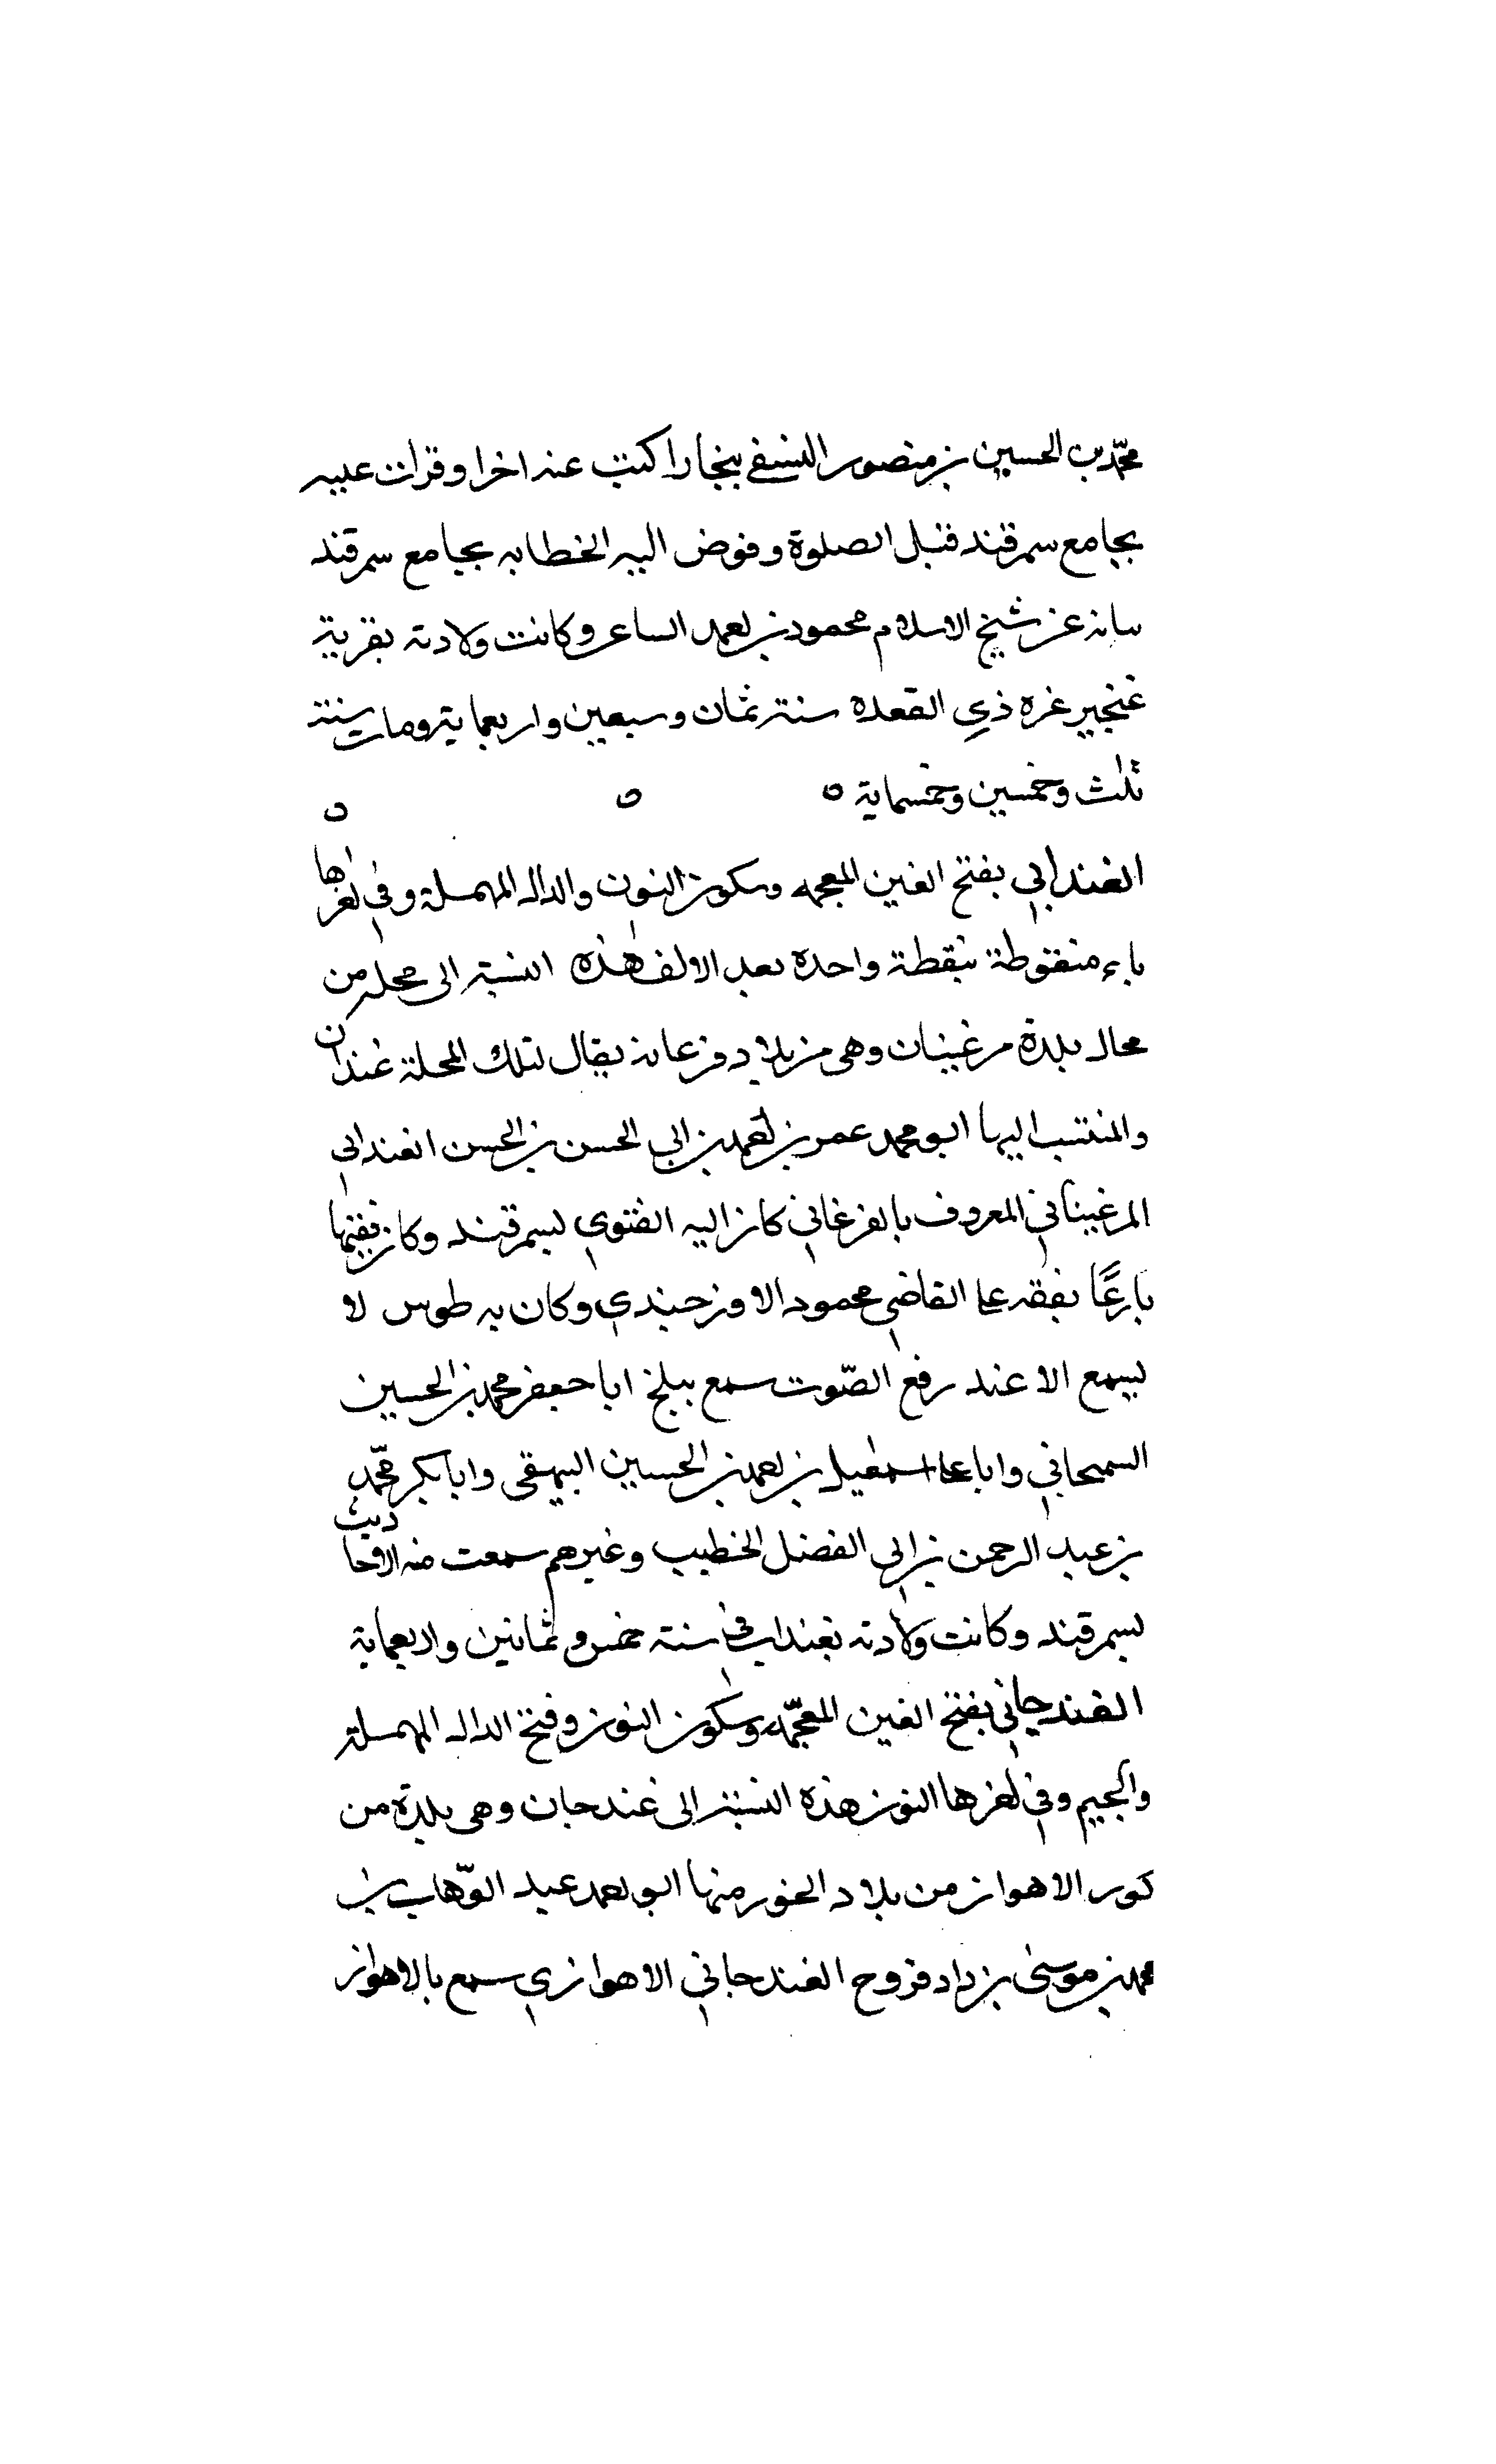 محمد بن الحسين بن منصور النسفي ببخارا كتبت عنه اخرا وقرات عليه
بجامع سمرقند قبل الصلوة وفوض اليه الخطابه بجامع سمرقند
نيابة عن شيخ الاسلام محمود بن احمد الساغرى وكانت ولادته بقرية
غنجير غره ذي القعدة سنة ثمان وسبعين واربعماية ومات سنة
ثلث وخمسين وخمسماية ه ه ه
الغندابي بفتح الغين المعجمه وسكون النون والدال المهملة وفي اخرها
باء منقوطة بنقطة واحدة بعد الالف هذه النسبة الى محلة من
محال بلدة مرغينان وهى من بلاد فرغانة يقال لتلك المحلة غنداب
والمنتسب اليها ابو محمد عمر بن احمد بن ابي الحسن بن الحسن الغندابي
المرغيناني المعروف بالفرغاني كان اليه الفتوي بسمرقند وكان فقيها
بارعًا تفقه على القاضي محمود الاوزجندي وكان به طوس لا
يسمع الا عند رفع الصّوت سمع ببلخ ابا جعفر محمد بن الحسين
السمنجاني وابا على اسمعيل بن احمد بن الحسين البيهقى وابا بكر محمّد
بن عبد الرحمن بن ابي الفضل الخطيب وغيرهم سمعت منه الاحاديث
بسمرقند وكانت ولادته بغنداب في سنة خمس وثمانين واربعماية
الغندجاني بفتح الغين المعجّمه وسكون النون وفتح الدال المهملة
والجيم وفي اخرها النون هذه النسبة الى غندجان وهى بلدة من
كور الاهواز من بلاد الخوز منها ابو احمد عبد الوّهاب بن
محمد بن موسى بن داد فروخ الغندجاني الاهوازي سمع بالاهواز